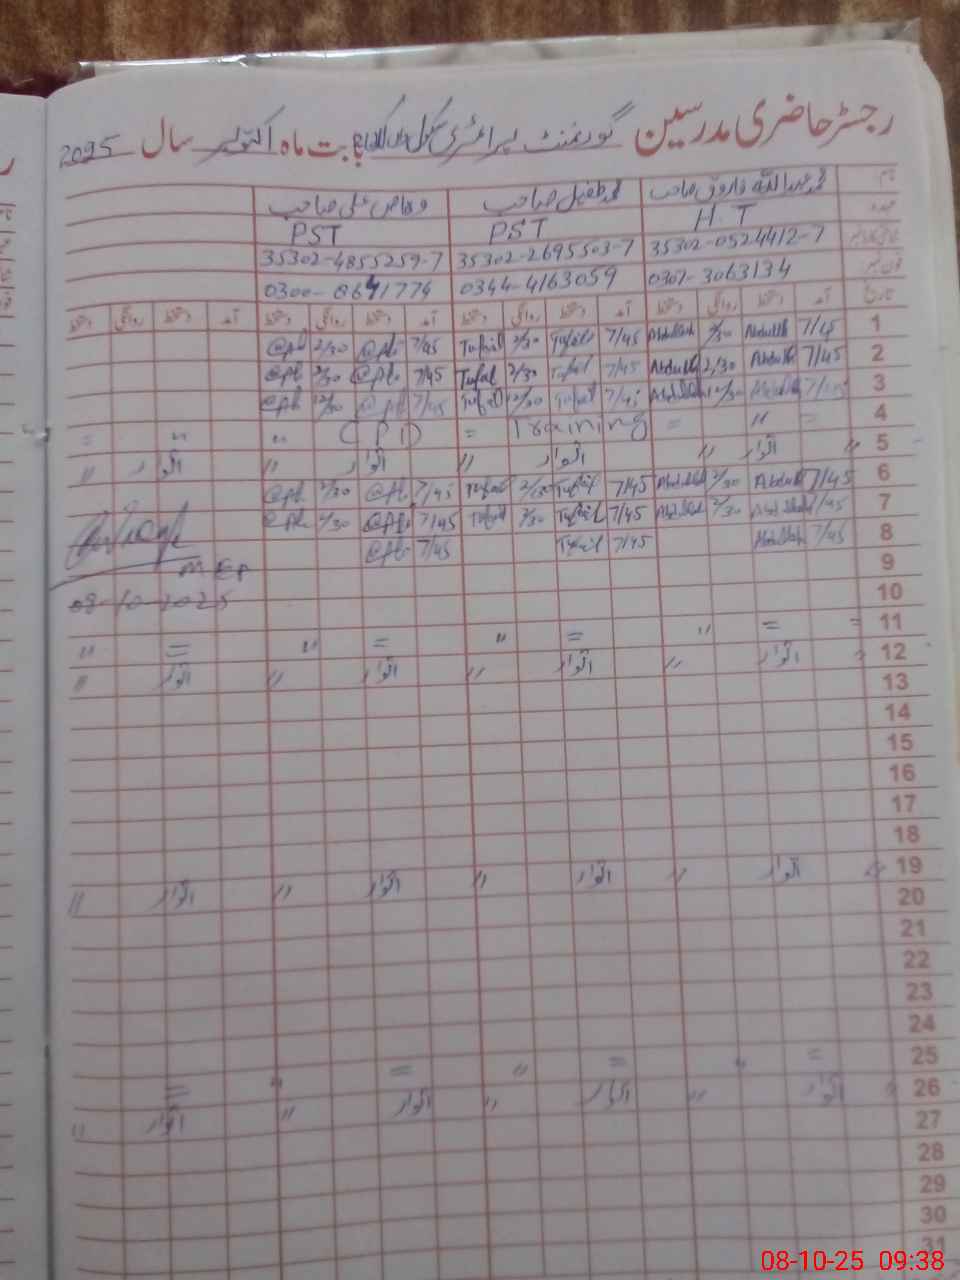 رجسٹر حاضری مدرسین گورنمنٹ پرائمری سکول بابت ماہ اکتوبر سال 2025
نام محمد عبداللہ فاروق صاحب محمد طفیل صاحب وقاص علی صاحب
عہدہ H.T PST PST
35302-0524412-7 35302-2695503-7 35302-4855259-7
0301-3063134 0344-4163059 0300-8641774
تاریخ آمد دستخط روانگی دستخط آمد دستخط روانگی دستخط آمد دستخط روانگی دستخط آمد دستخط روانگی دستخط
1 7/45 Abdullah 2/30 Abdullah 7/45 Tufail 2/30 Tufail 7/45 2/30
2 7/45 Abdullah 2/30 Abdullah 7/45 Tufail 2/30 Tufail 7/45 2/30
3 7/45 Abdullah 12/30 Abdullah 7/45 Tufail 12/30 Tufail 7/45 12/30
4 = " = Training = (CPD) " " =
5 " اتوار " اتوار " اتوار " اتوار "
6 7/45 Abdullah 2/30 Abdullah 7/45 Tufail 2/30 Tufail 7/45 2/30
7 7/45 Abdullah 2/30 Abdullah 7/45 Tufail 2/30 Tufail 7/45 2/30
8 7/45 Abdullah 7/45 Tufail 7/45
9
08-10-2025
10
11 = = " = " = " = "
12 " اتوار " اتوار " اتوار " اتوار "
13
14
15
16
17
18
19 " اتوار " اتوار " اتوار " اتوار "
20
21
22
23
24
25 = " = " = " =
26 " اتوار " اتوار " اتوار " اتوار "
27
28
29
30
31
08-10-25 09:38